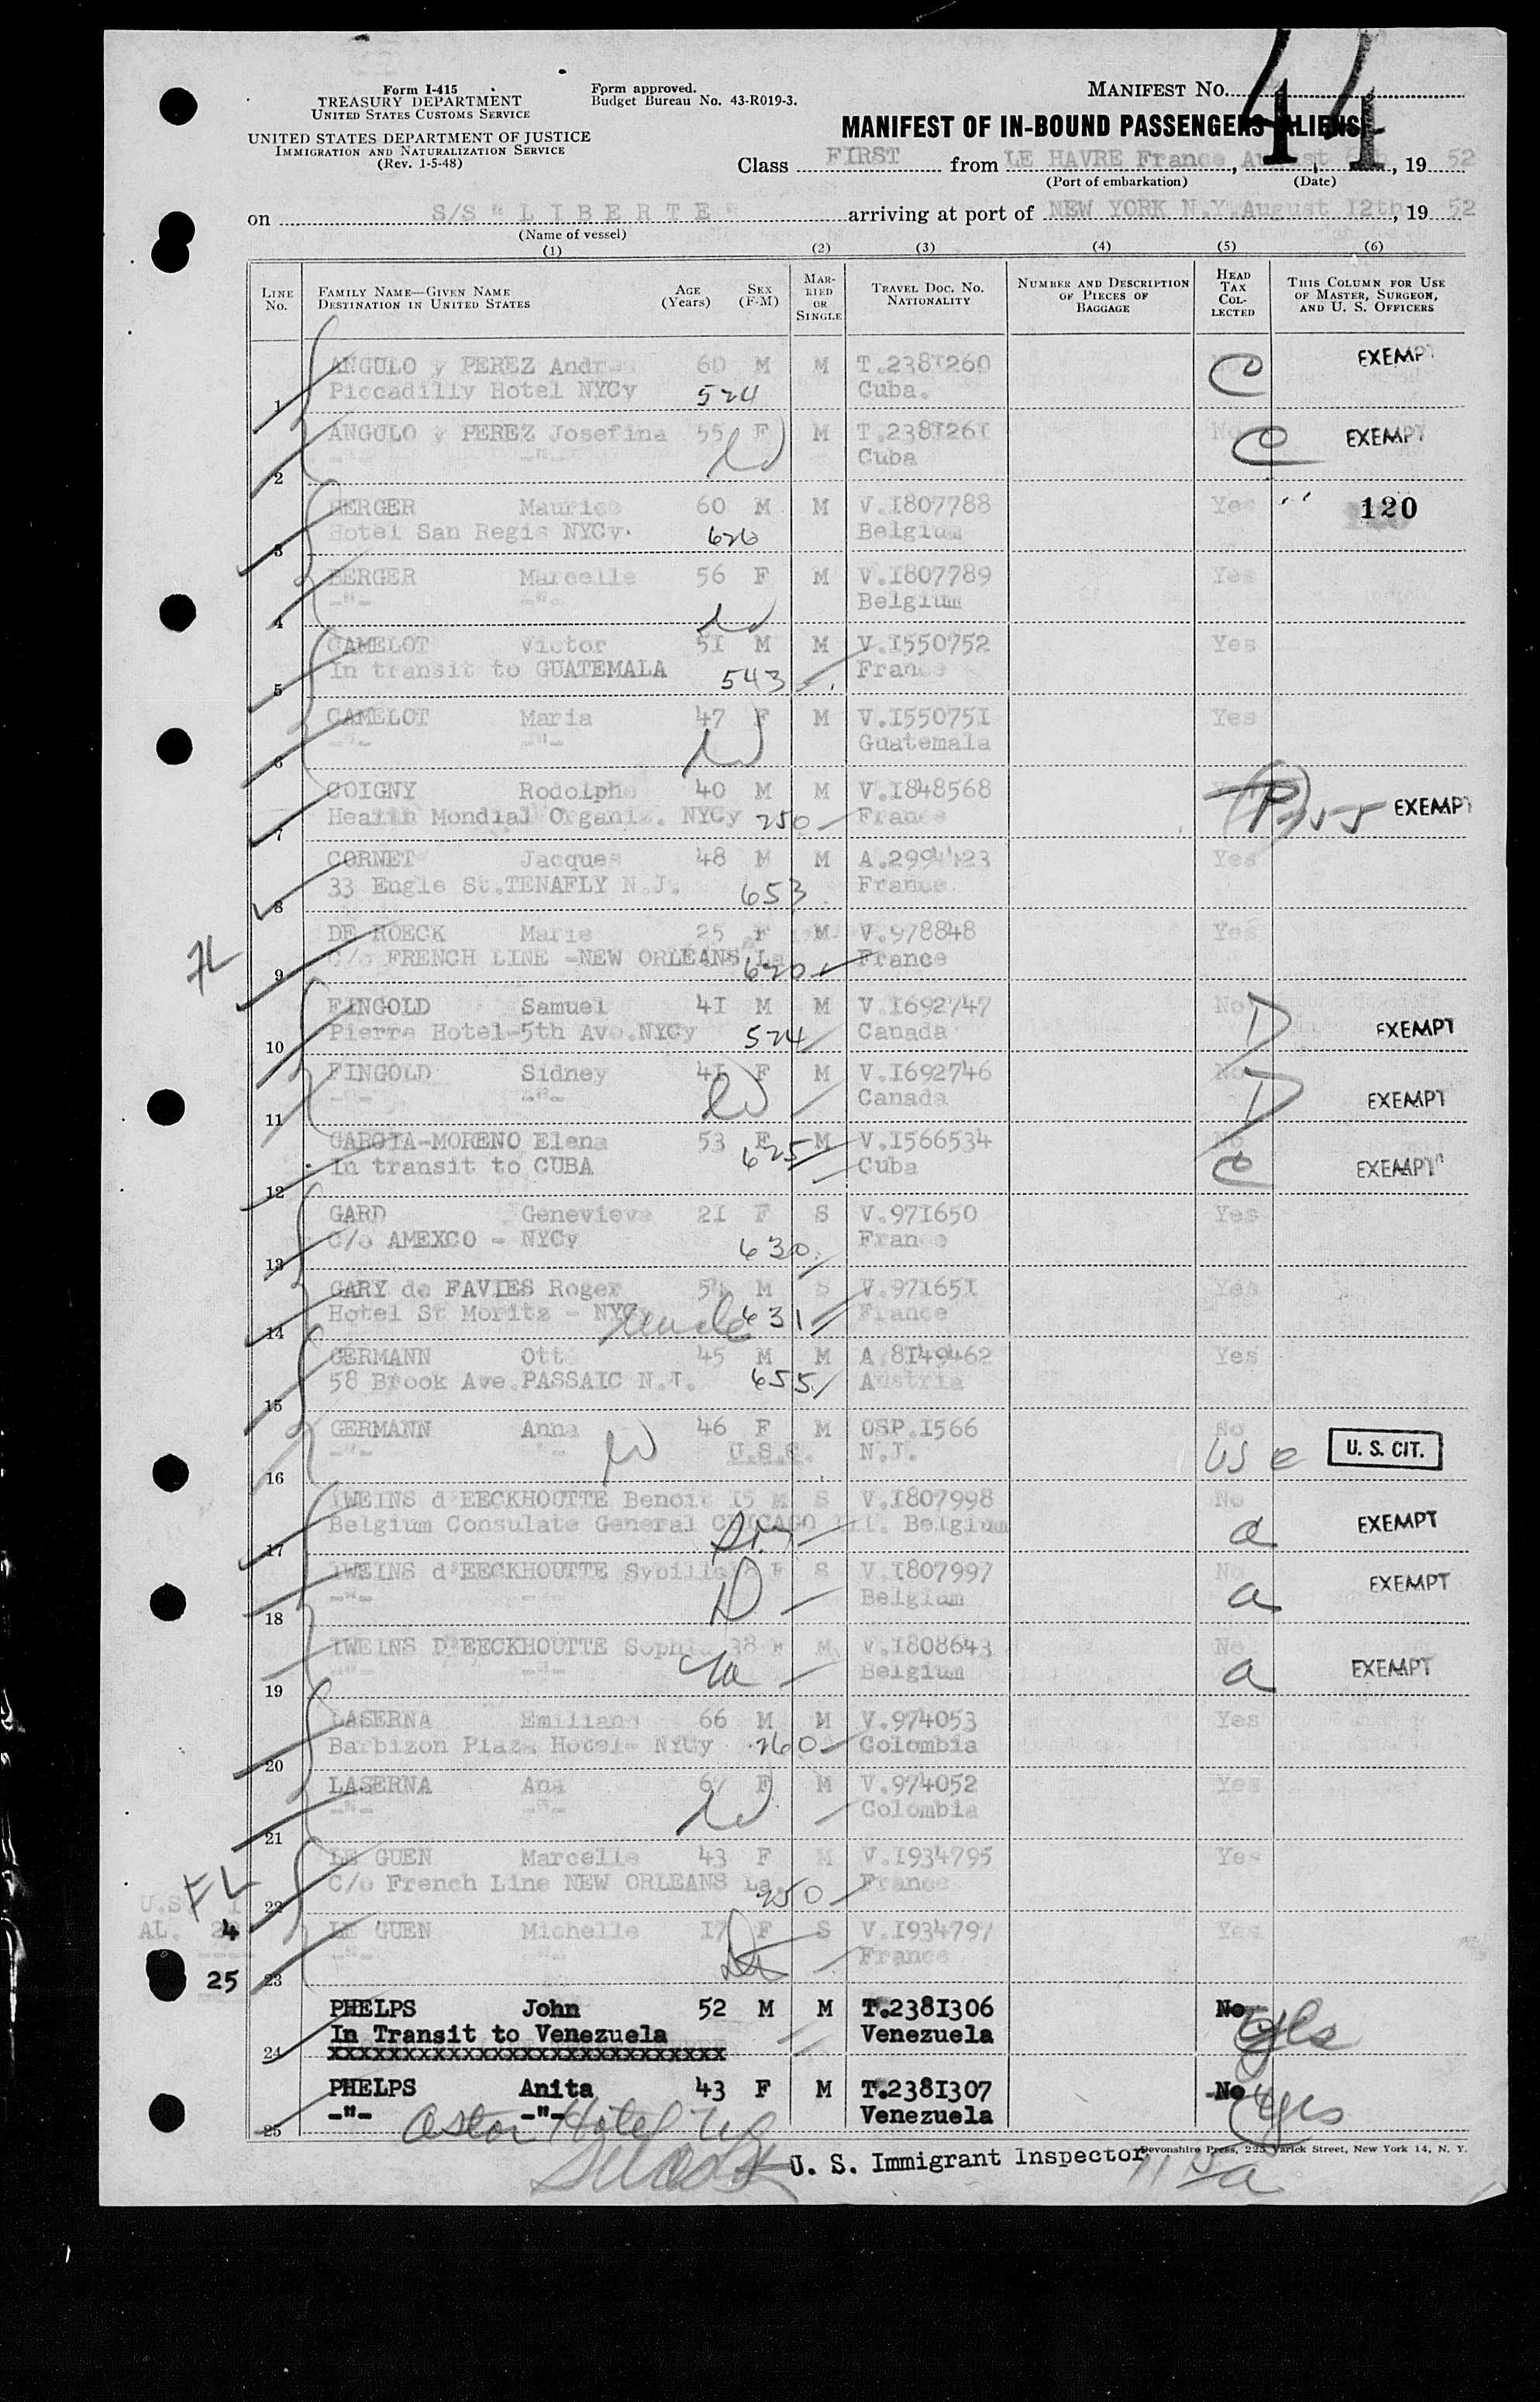 Form I-415
TREASURY DEPARTMENT
UNITED STATES CUSTOMS SERVICE
UNITED STATES DEPARTMENT OF JUSTICE
IMMIGRATION AND NATURALIZATION SERVICE
(Rev. 1-5-48)
Form approved.
Budget Bureau No. 43-R019-3.
MANIFEST No. 44
MANIFEST OF IN-BOUND PASSENGERS (ALIENS)
Class FIRST from LE HAVRE France, August , 19 52
(Port of embarkation) (Date)
on S/S " L I B E R T E " arriving at port of NEW YORK N.Y. August 12th, 19 52
(Name of vessel)
(1) (2) (3) (4) (5) (6)
LINE No. FAMILY NAME—GIVEN NAME DESTINATION IN UNITED STATES AGE (Years) SEX (F-M) MARRIED OR SINGLE TRAVEL DOC. NO. NATIONALITY NUMBER AND DESCRIPTION OF PIECES OF BAGGAGE HEAD TAX COLLECTED THIS COLUMN FOR USE OF MASTER, SURGEON, AND U. S. OFFICERS
ANGULO y PEREZ Andres 60 M M T.2381260 C EXEMPT
1 Piccadilly Hotel NYCy 524 Cuba.
ANGULO y PEREZ Josefina 55 F M T.2381261 No C EXEMPT
2 -"- -"- W Cuba
BERGER Maurice 60 M M V.1807788 Yes 120
3 Hotel San Regis NYCy. 626 Belgium
BERGER Marcelle 56 F M V.1807789 Yes
4 -"- -"- W Belgium
CAMELOT Victor 51 M M V.1550752 Yes
5 In transit to GUATEMALA 543 France
CAMELOT Maria 47 F M V.1550751 Yes
6 -"- -"- W Guatemala
COIGNY Rodolphe 40 M M V.1848568 EXEMPT
7 Health Mondial Organiz. NYCy 250 France
CORNET Jacques 48 M M A.2994423 Yes
8 33 Engle St.TENAFLY N.J. 653 France
FL DE ROECK Marie 25 F M V.978848 Yes
9 C/o FRENCH LINE -NEW ORLEANS La 620 France
FINGOLD Samuel 41 M M V.1692747 No D EXEMPT
10 Pierre Hotel-5th Ave.NYCy 524 Canada
FINGOLD Sidney 41 F M V.1692746 No D EXEMPT
11 -"- -"- W Canada
GARCIA-MORENO Elena 53 F M V.1566534 No
12 In transit to CUBA 625 Cuba C EXEMPT
GARD Genevieve 21 F S V.971650 Yes
13 C/o AMEXCO - NYCy 630 France
GARY de FAVIES Roger 54 M S V.971651 Yes
14 Hotel St Moritz - NYCy uncle 631 France
GERMANN Otto 45 M M A 8149462 Yes
15 58 Brook Ave.PASSAIC N.J. 655 Austria
GERMANN Anna 46 F M OSP.1566 No
16 -"- -"- W U.S.C. N.J. USC U. S. CIT.
IWEINS d'EECKHOUTTE Benoit 15 M S V.1807998 No EXEMPT
17 Belgium Consulate General CHICAGO Ill. Belgium a
IWEINS d'EECKHOUTTE Sybille F S V.1807997 No EXEMPT
18 -"- -"- D Belgium a
IWEINS D'EECKHOUTTE Sophie 38 F M V.1808643 No
19 -"- -"- Belgium a EXEMPT
LASERNA Emiliano 66 M M V.974053 Yes
20 Barbizon Plaza Hotel- NYCy 260 Colombia
LASERNA Ana F M V.974052 Yes
21 -"- -"- W Colombia
LE GUEN Marcelle 43 F M V.1934795 Yes
FL 22 C/o French Line NEW ORLEANS La. 250 France
U.S. 1
AL. 24
25
LE GUEN Michelle 17 F S V.1934797 Yes
23 -"- -"- France
PHELPS John 52 M M T.2381306 No Yes
In Transit to Venezuela Venezuela
24 xxxxxxxxxxxxxxxxxxxxxxxxxxx
PHELPS Anita 43 F M T.2381307 No Yes
25 -"- -"- Venezuela
Astor Hotel NY
U. S. Immigrant Inspector
Devonshire Press, 225 Varick Street, New York 14, N. Y.